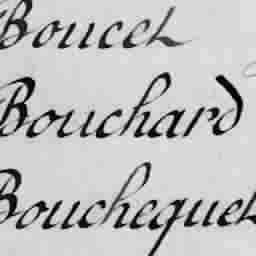 Boucet
Bouchard
Bouchequet